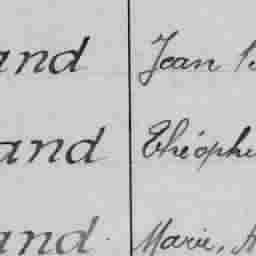 and Jean B
and Théophi
and Marie, A